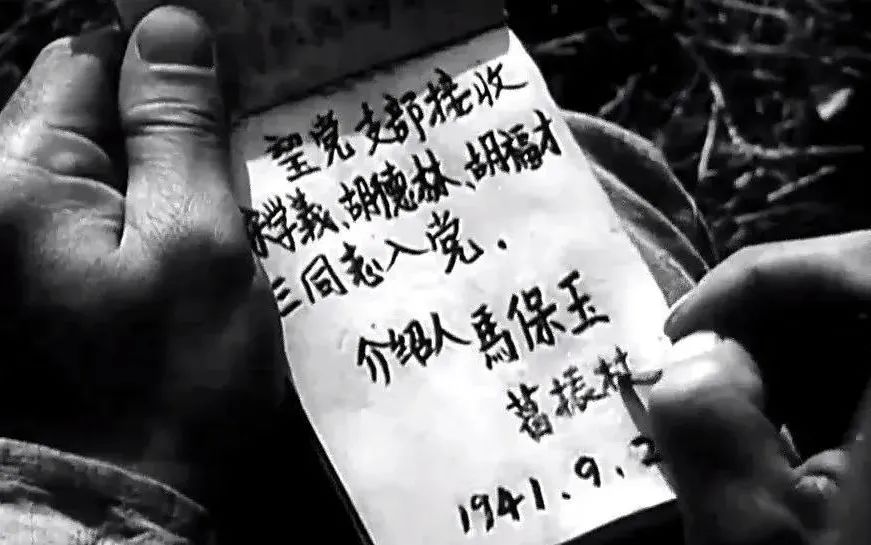 望党支部接收
宋学義、胡德林、胡福才
三同志入党.
介绍人馬保玉
葛振林
1941.9.2